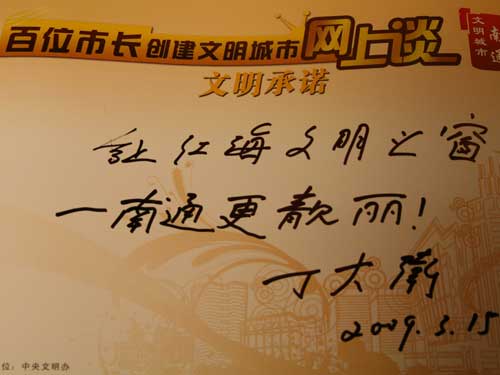 百位市长创建文明城市网上谈
文明承诺
文明城市
南通
让江海文明之窗
一南通更靓丽！
丁大衛
2009.3.15
位：中央文明办